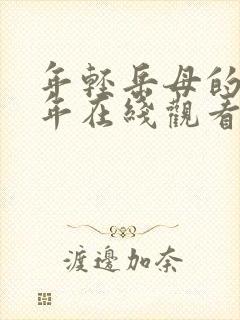 年轻岳母的
年在綫觀看
渡邊加奈